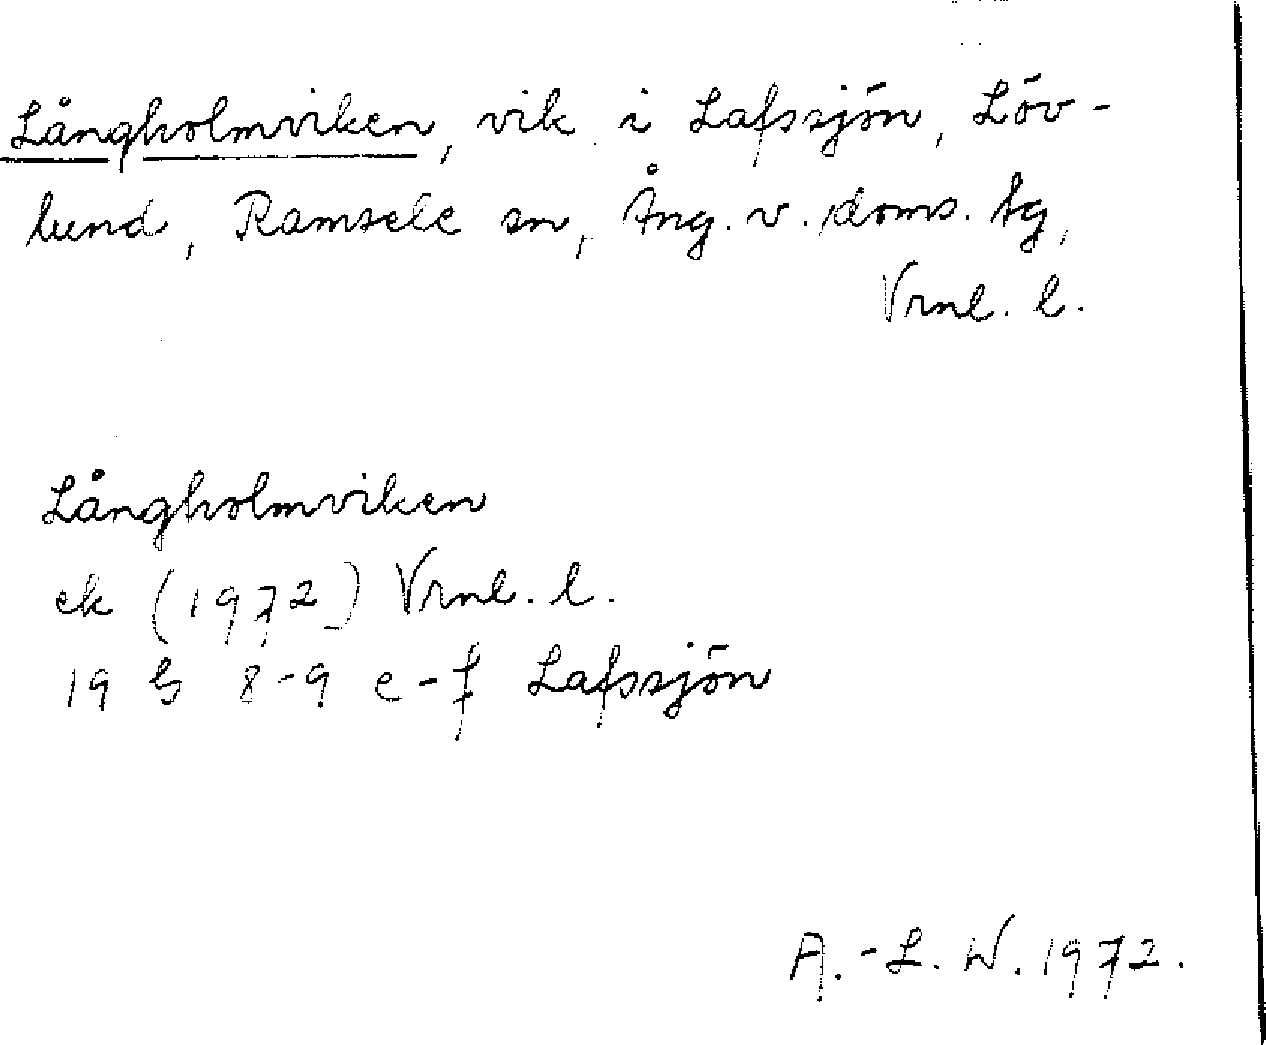 Långholmviken, vik i Lafssjön, Löv-
lund, Ramsele sn, Ång. v. doms. tg,
Vrnl. l.
Långholmviken
ek (1972) Vrnl. l.
19 G 8-9 e-f Lafssjön
A.-L. W. 1972.